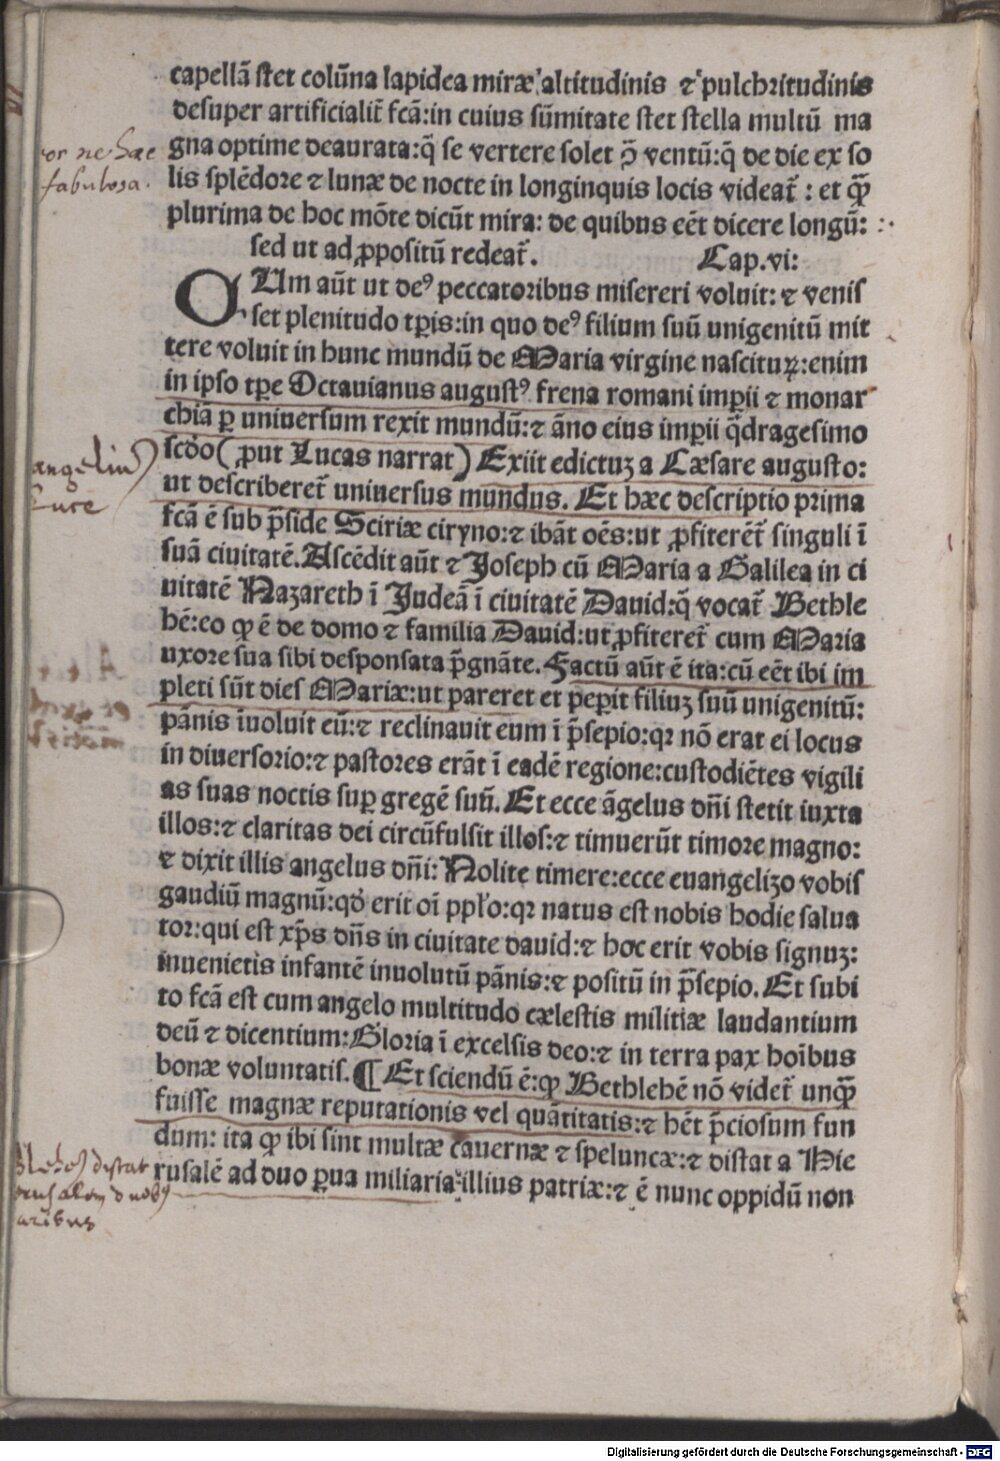 capellā ſtet colūna lapidea miræ altitudinis ⁊ pulchritudinis
deſuper artificialit̄ fcā: in cuius sūmitate ſtet ſtella multū ma
gna optime deaurata: q̄ ſe vertere ſolet ꝓ̄ ventū: q̄ de die ex ſo
or ne hæc
fabulosa.
lis ſplēdore ⁊ lunæ de nocte in longinquis locis videat̄: et qꝫ̄
plurima de hoc mōte dicūt mira: de quibus eēt dicere longū:
ſed ut ad ꝓpoſitū redeat̄. Cap.vi:
CUm aūt ut deꝰ peccatoribus miſereri voluit: ⁊ veniſ
ſet plenitudo tp̄is: in quo deꝰ filium ſuū unigenitū mit
tere voluit in hunc mundū de Maria virgine naſcituꝝ: enim
in ipſo tp̄e Octavianus auguſtꝰ frena romani imꝑii ⁊ monar
chiā ꝑ univerſum rexit mundū: ⁊ āno eius imꝑii q̄drageſimo
ſcd̄o (ꝓut Lucas narrat) Exiit edictuꝫ a Cæſare auguſto:
angeliū
Luce
ut deſcriberet̄ univerſus mundus. Et hæc deſcriptio prima
fcā ē ſub p̄ſide Sciriæ ciryno: ⁊ ibāt oēs: ut ꝓfiterēt̄ ſinguli ī
ſuā ciuitatē. Aſcēdit aūt ⁊ Joſeph cū Maria a Galilea in ci
uitatē Nazareth ī Judeā ī ciuitatē David: q̄ vocat̄ Bethle
hē: eo ꝙ ē de domo ⁊ familia David: ut ꝓfiteret̄ cum Maria
uxore ſua ſibi deſponſata p̄gnāte. Factū aūt ē ita: cū eēt ibi im
pleti ſūt dieſ Mariæ: ut pareret et peꝑit filiuꝫ ſuū unigenitū:
pānis īuoluit eū: ⁊ reclinauit eum ī p̄ſepio: qꝛ nō erat ei locus
in diverſorio: ⁊ paſtores erāt ī eadē regione: cuſtodiētes vigili
as ſuas noctis ſuꝑ gregē ſuū. Et ecce āgelus dn̄i ſtetit iuxta
illos: ⁊ claritas dei circūfulſit illoſ: ⁊ timuerūt timore magno:
⁊ dixit illis angelus dn̄i: Nolite timere: ecce euangelizo vobiſ
gaudiū magnū: qd̄ erit oī ppl̄o: qꝛ natus eſt nobis hodie ſalua
tor: qui eſt xp̄s dn̄s in ciuitate david: ⁊ hoc erit vobis ſignuꝫ:
inuenietis infantē inuolutū pānis: ⁊ poſitū in p̄ſepio. Et ſubi
to fcā eſt cum angelo multitudo cæleſtis militiæ laudantium
deū ⁊ dicentium: Gloria ī excelſis deo: ⁊ in terra pax hoībus
bonæ voluntatiſ. ¶ Et ſciendū ē: ꝙ Bethlehē nō videt̄ unqꝫ̄
fuiſſe magnæ reputationis vel quātitatis: ⁊ hēt p̄cioſum fun
dum: ita ꝙ ibi ſint multæ cauernæ ⁊ ſpeluncæ: ⁊ diſtat a Hie
ruſalē ad duo ꝑua miliaria illius patriæ: ⁊ ē nunc oppidū non
distat
duobꝰ
aribus
Digitalisierung gefördert durch die Deutsche Forschungsgemeinschaft - DFG